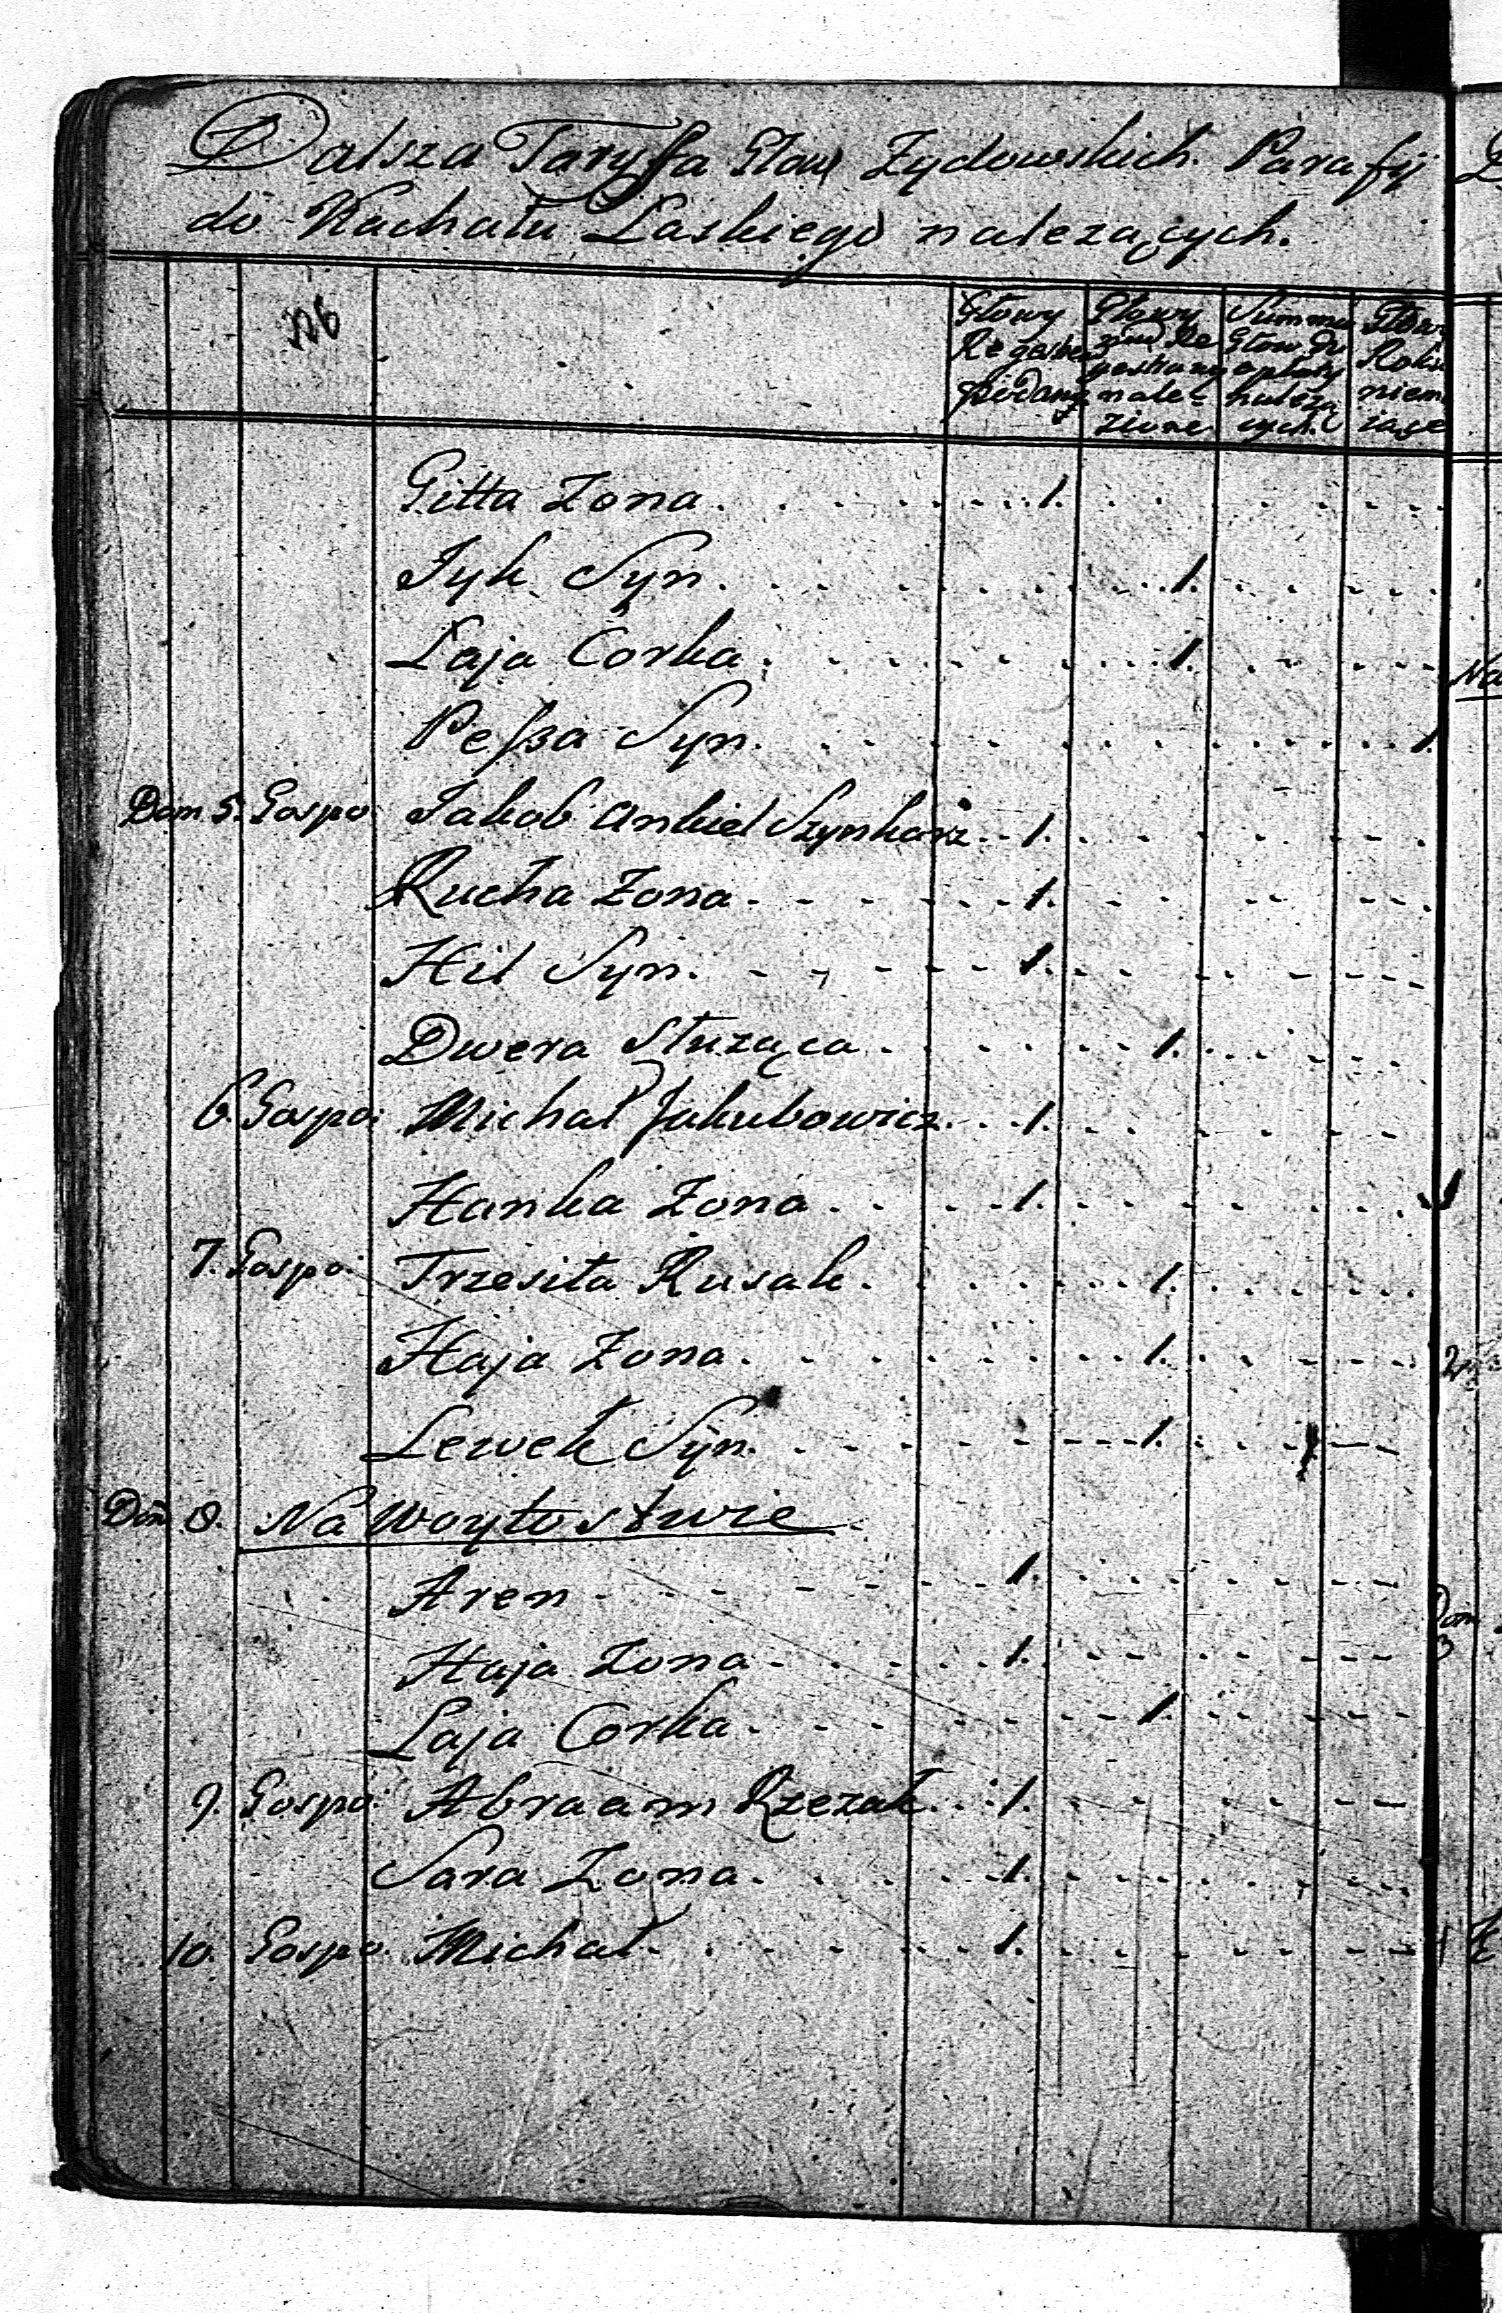 Dalsza Taryffa Głow Zydowskich Parafij
do Kachału Laskiego nalezących.
Głowy Regestrem podane
Głowy nad Re gestra znale= zione
Summa Głow do opłaty nalezą cych
Głowy Roku niema iące
Gitta Zona 1.
Jyk Syn 1.
Laja Corka 1.
Peſsa Syn 1.
Dom 5. Gospo Jakob Ankiel Szynkarz 1.
Rucha Zona 1.
Hil Syn 1.
Dwera Słuząca 1.
6. Gospo: Michał Jakubowicz 1.
Hanka Zona 1.
7. Gospo. Trzesiła Rusak 1.
Haja Zona 1.
Lewek Syn 1.
Dom 8. Na Woytostwie
Aren 1.
Haja Zona 1.
Laja Corka 1.
9. Gospo: Abraam Rzezak 1.
Sara Zona 1.
10. Gospo. Michał 1.